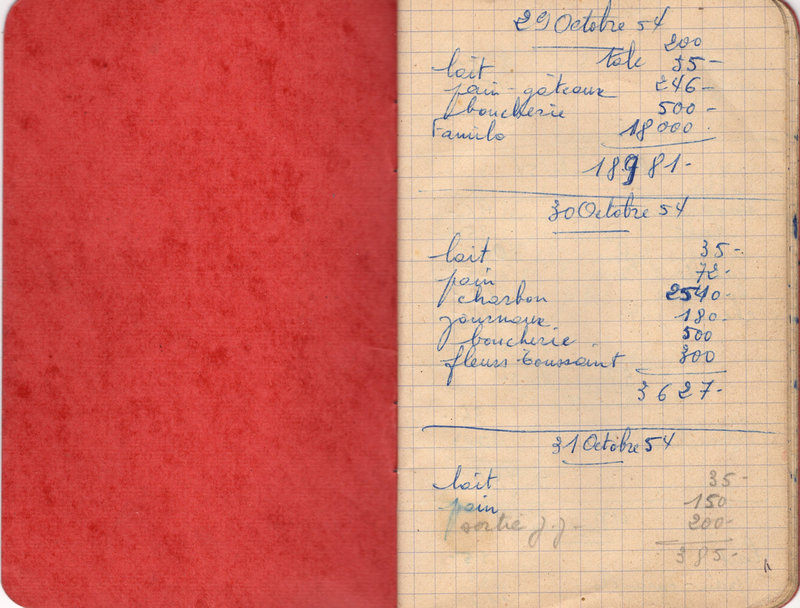 29 Octobre 54
talc 200
lait 35-
pain-gâteaux 246-
boucherie 500-
Familo 18000.
18981-
30 Octobre 54
lait 35-
pain 72-
charbon 2540-
journaux 180-
boucherie 500
fleurs Toussaint 300
3627-
31 Octobre 54
lait 35-
pain 150
sortie J.J- 200-
385-